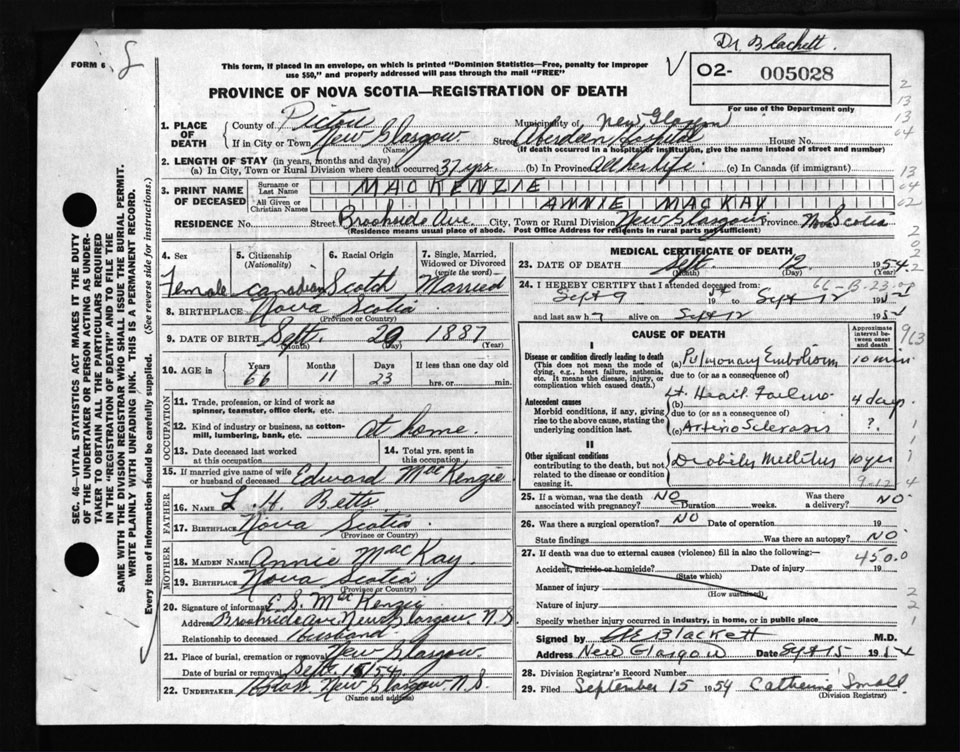 Dr Blackett.
FORM 6
This form, if placed in an envelope, on which is printed "Dominion Statistics—Free, penalty for improper
use $50," and properly addressed will pass through the mail "FREE"
02- 005028
For use of the Department only
PROVINCE OF NOVA SCOTIA—REGISTRATION OF DEATH
SEC. 46—VITAL STATISTICS ACT MAKES IT THE DUTY
OF THE UNDERTAKER OR PERSON ACTING AS UNDER-
TAKER TO OBTAIN ALL THE PARTICULARS REQUIRED
IN THE "REGISTRATION OF DEATH" AND TO FILE THE
SAME WITH THE DIVISION REGISTRAR WHO SHALL ISSUE THE BURIAL PERMIT.
WRITE PLAINLY WITH UNFADING INK. THIS IS A PERMANENT RECORD.
Every item of information should be carefully supplied. (See reverse side for instructions.)
1. PLACE OF DEATH
County of Pictou Municipality of New Glasgow
If in City or Town New Glasgow Street Aberdeen Hospital House No.
(Name) (If death occurred in a hospital or institution, give the name instead of street and number)
2. LENGTH OF STAY (in years, months and days)
(a) In City, Town or Rural Division where death occurred 37 yrs. (b) In Province All her life. (c) In Canada (if immigrant)
3. PRINT NAME OF DECEASED
Surname or Last Name MACKENZIE
All Given or Christian Names ANNIE MACKAY
RESIDENCE No. Street Brookside Ave. City, Town or Rural Division New Glasgow Province Nova Scotia
(Residence means usual place of abode. Post Office Address for residents in rural parts not sufficient)
4. Sex Female
5. Citizenship (Nationality) Canadian
6. Racial Origin Scotch
7. Single, Married, Widowed or Divorced (write the word) Married
8. BIRTHPLACE Nova Scotia
(Province or Country)
9. DATE OF BIRTH Sept. 20 1887
(Month) (Day) (Year)
10. AGE in Years 66 Months 11 Days 23 If less than one day
hrs. or min.
OCCUPATION
11. Trade, profession, or kind of work as
spinner, teamster, office clerk, etc.
12. Kind of industry or business, as cotton-
mill, lumbering, bank, etc. At home.
13. Date deceased last worked
at this occupation
14. Total yrs. spent in
this occupation
15. If married give name of wife
or husband of deceased Edward MacKenzie
FATHER
16. NAME L. H. Betts
17. BIRTHPLACE Nova Scotia
(Province or Country)
MOTHER
18. MAIDEN NAME Annie MacKay
19. BIRTHPLACE Nova Scotia.
(Province or Country)
20. Signature of informant E. S. MacKenzie
Address Brookside Ave, New Glasgow N.S
Relationship to deceased Husband
21. Place of burial, cremation or removal New Glasgow.
Date of burial or removal Sept. 15/54
22. UNDERTAKER New Glasgow N.S.
(Name and address)
MEDICAL CERTIFICATE OF DEATH
23. DATE OF DEATH Sept. 12 1954
(Month) (Day) (Year)
24. I HEREBY CERTIFY that I attended deceased from:
Sept 9 to Sept 12 19
and last saw h alive on Sept 12 19
CAUSE OF DEATH
Approximate interval between onset and death
I
Disease or condition directly leading to death
(This does not mean the mode of
dying, e.g., heart failure, asthenia,
etc. It means the disease, injury, or
complication which caused death.)
(a) Pulmonary Embolism 10 min
due to (or as a consequence of)
Antecedent causes
Morbid conditions, if any, giving
rise to the above cause, stating the
underlying condition last.
(b) Lt. Heart Failure 4 days.
due to (or as a consequence of)
(c) Arterio Sclerosis ?.
II
Other significant conditions
contributing to the death, but not
related to the disease or condition
causing it.
Diabetes Mellitus 10 yrs
25. If a woman, was the death associated with pregnancy? NO Duration weeks. Was there a delivery? NO.
26. Was there a surgical operation? NO Date of operation 19
State findings Was there an autopsy? NO
27. If death was due to external causes (violence) fill in also the following:— 450.0
Accident, suicide or homicide? Date of injury 19
(State which)
Manner of injury
(How sustained)
Nature of injury
Specify whether injury occurred in industry, in home, or in public place
Signed by Blackett M.D.
Address New Glasgow Date Sept 15 1954
28. Division Registrar's Record Number
29. Filed September 15 1954 Catherine Small.
(Division Registrar)